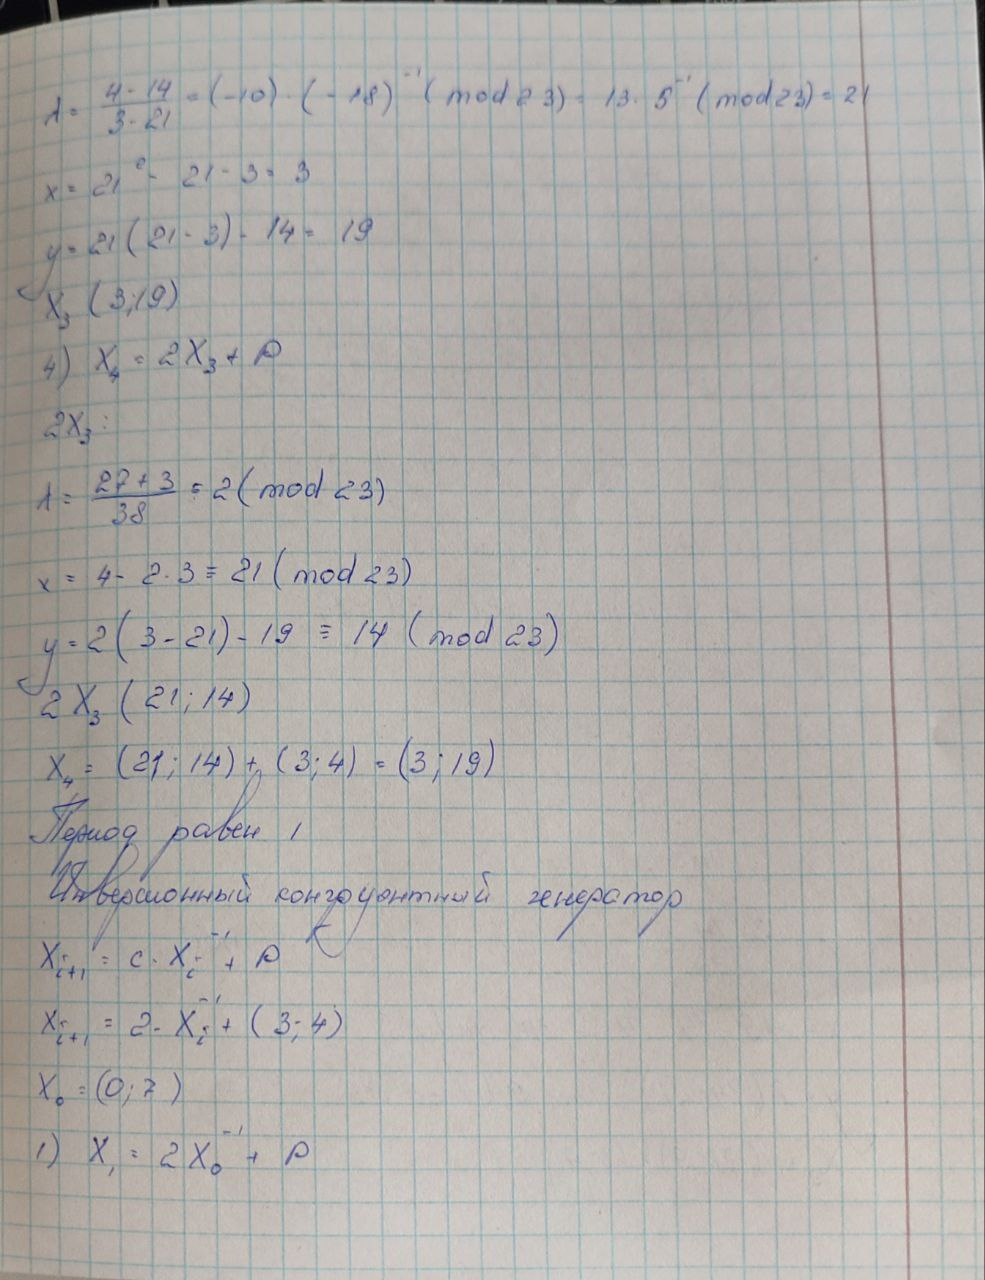 λ = \frac{4-14}{3-21} = (-10) · (-18)^{-1} (mod 23) = 13 · 5^{-1} (mod 23) = 21
x = 21^2 - 21 - 3 = 3
y = 21(21-3) - 14 = 19
X_3 (3; 19)
4) X_4 = 2X_3 + P
2X_3:
λ = \frac{27+3}{38} ≡ 2 (mod 23)
x = 4 - 2·3 ≡ 21 (mod 23)
y = 2(3-21) - 19 ≡ 14 (mod 23)
2X_3 (21; 14)
X_4 = (21; 14) + (3; 4) = (3; 19)
Период равен 1
Инверсионный конгруэнтный генератор
X_{i+1} = c · X_i^{-1} + P
X_{i+1} = 2 · X_i^{-1} + (3; 4)
X_0 = (0; 7)
1) X_1 = 2X_0^{-1} + P